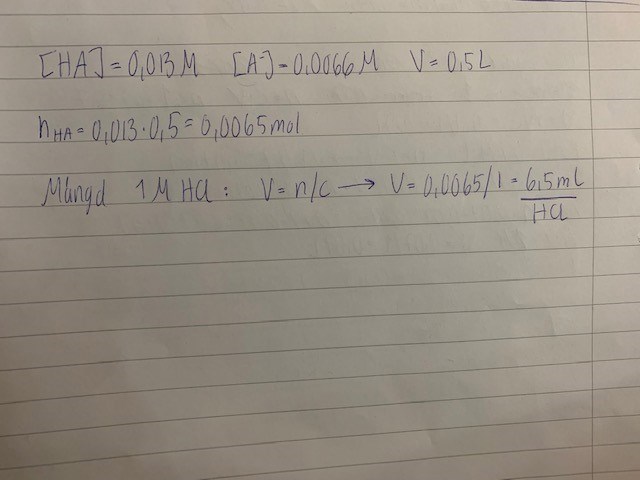 [HA] = 0,013 M [A⁻] = 0,0066 M V = 0,5 L
nHA = 0,013 · 0,5 = 0,0065 mol
Mängd 1 M HCl : V = n/c → V = 0,0065/1 = 6,5 mL
HCl